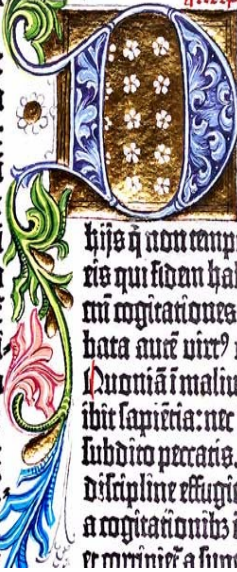 D
hijs q̄ non temp
eis qui fidem hab
mī cogitationes
bata autē virt⁹
Quoniā ī maliuo
ibit sapiētia: nec
subdito peccatis.
discipline effugie
a cogitationibꝫ
et corripiet a sup